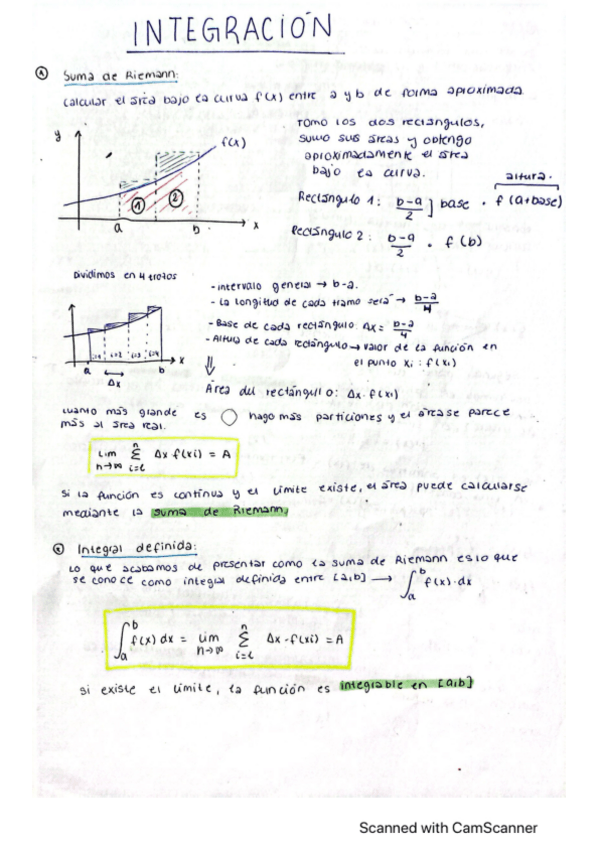 INTEGRACIÓN
① Suma de Riemann:
Calcular el área bajo la curva f(x) entre a y b de forma aproximada
Tomo los dos rectángulos,
sumo sus áreas y obtengo
aproximadamente el área
bajo la curva.
y
f(x)
① ②
a b x
altura.
Rectángulo 1: b-a/2 ] base · f(a+base)
Rectángulo 2: b-a/2 · f(b)
Dividimos en 4 trozos
- intervalo general → b-a.
- La longitud de cada tramo será → b-a/4
- Base de cada rectángulo: Δx = b-a/4
- Altura de cada rectángulo → valor de la función en
el punto xi : f(xi)
a b x
Δx
⇓
Área del rectángulo: Δx·f(xi)
cuanto más grande es ◯ hago más particiones y el área se parece
más al área real.
lim n→∞ Σ n i=1 Δx f(xi) = A
si la función es continua y el límite existe, el área puede calcularse
mediante la suma de Riemann,
② Integral definida:
Lo que acabamos de presentar como la suma de Riemann es lo que
se conoce como integral definida entre [a,b] → ∫ₐᵇ f(x)·dx
∫ₐᵇ f(x) dx = lim n→∞ Σ n i=1 Δx·f(xi) = A
si existe el límite, la función es integrable en [a,b]
Scanned with CamScanner